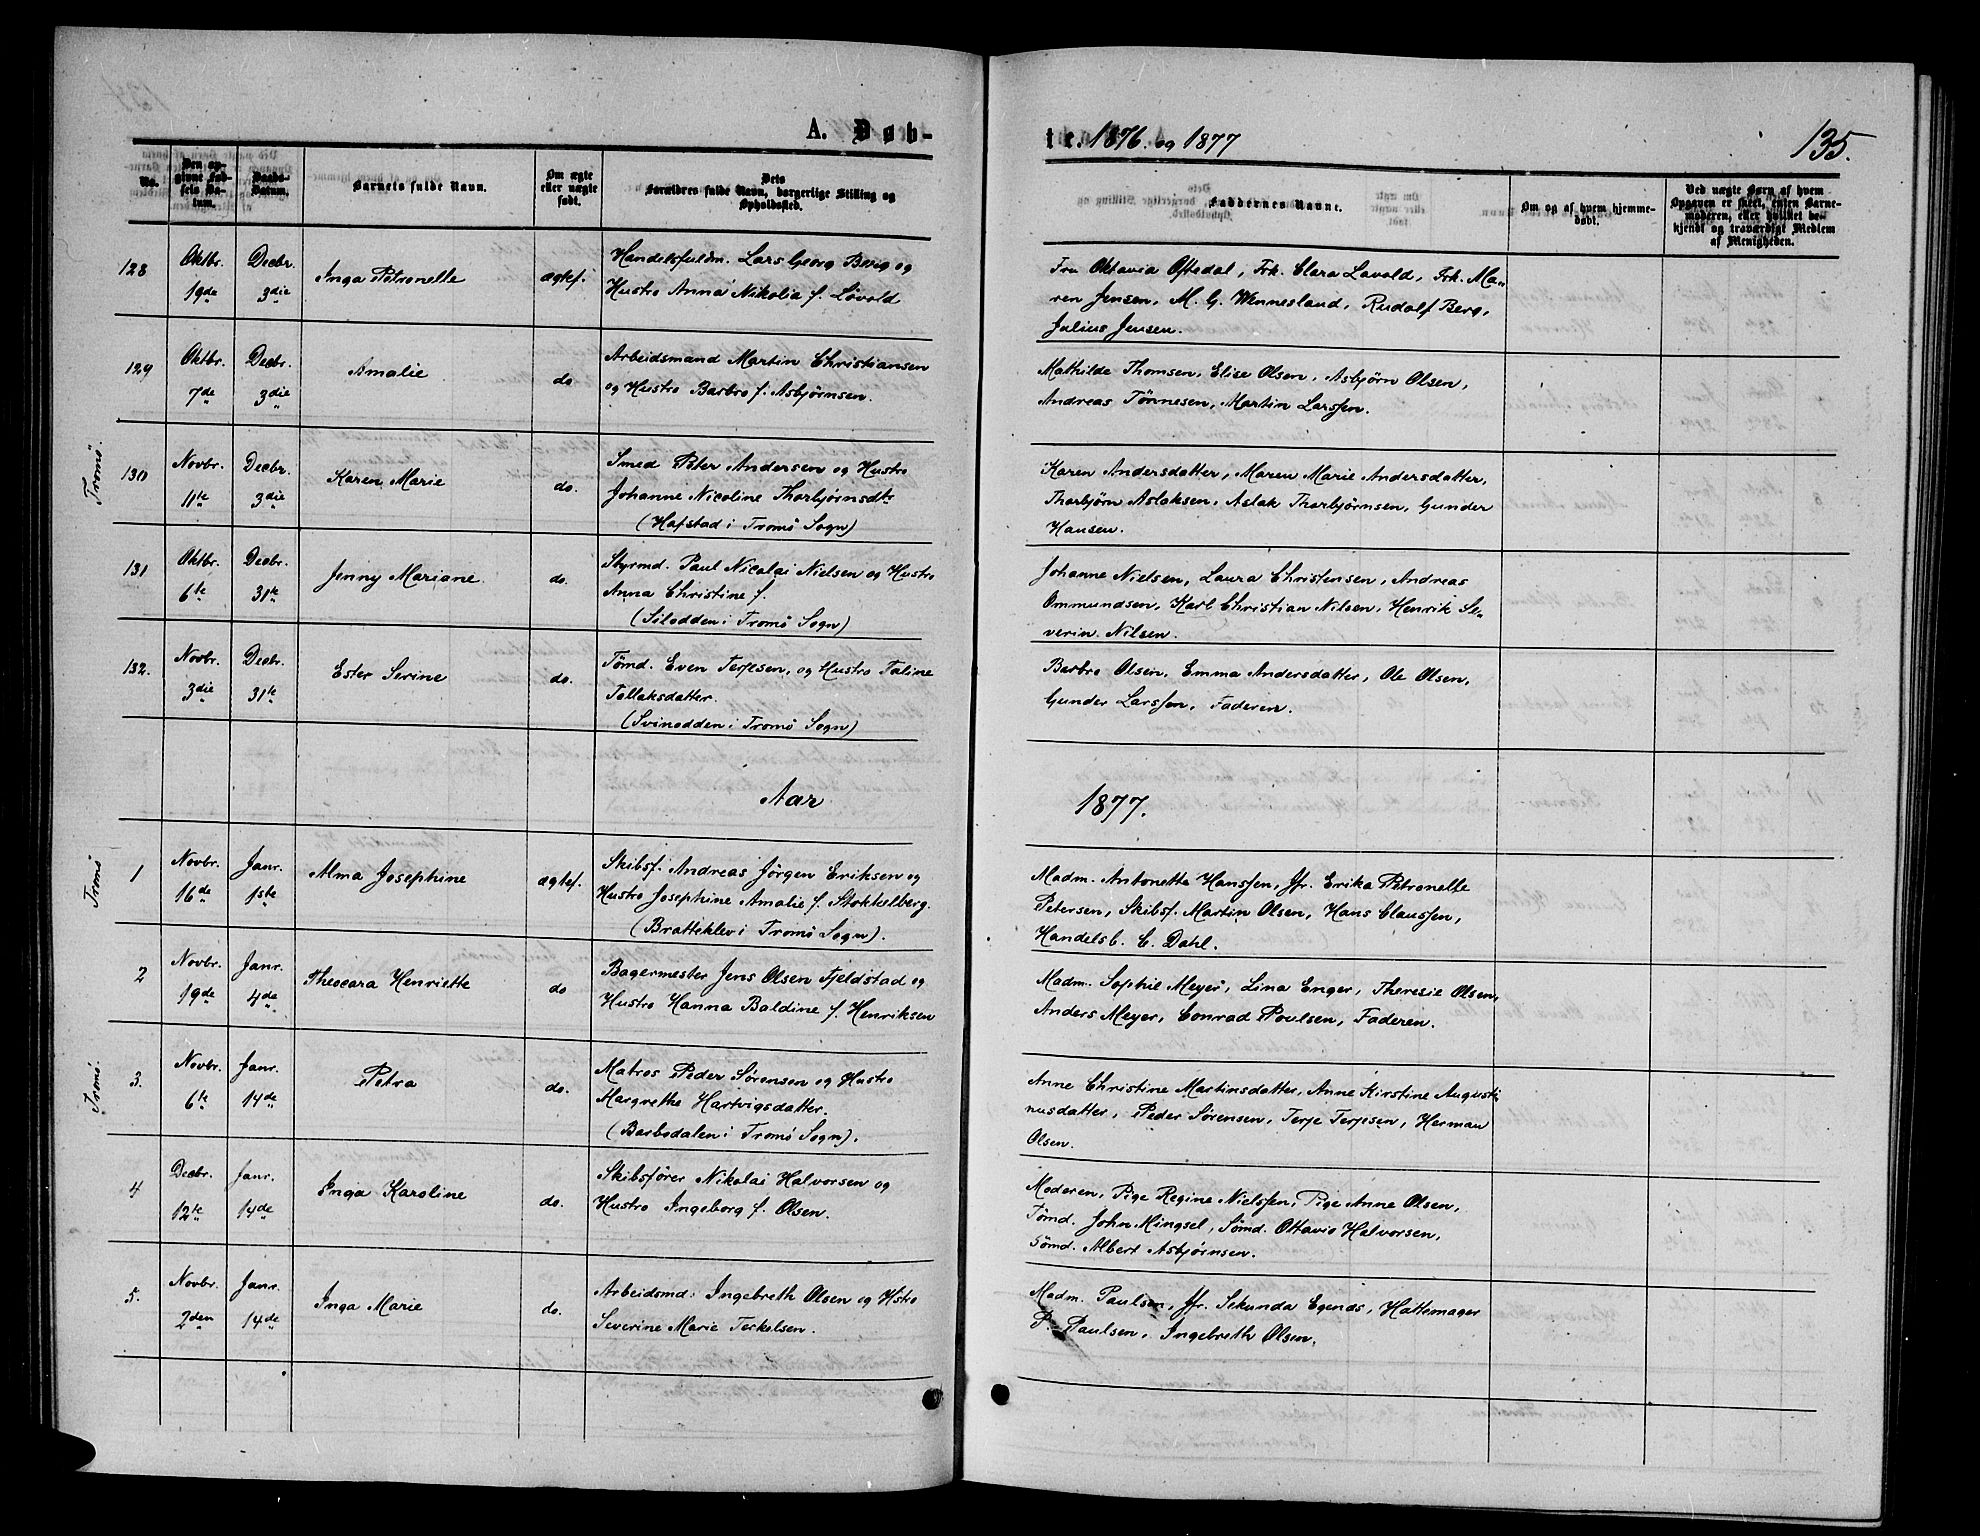 A. Døb-
te. 1876. og 1877
135.
No.
Den op-
givne Fød-
sels Da-
tum.
Daabs-
Datum.
Barnets fulde Navn.
Om ægte
eller uægte
født.
Dets
Forældres fulde Navn, borgerlige Stilling og
Opholdssted.
Faddernes Navne.
Om og af hvem hjemme-
døbt.
Ved uægte Børn af hvem
Opgaven er skeet, enten Barne-
moderen, eller hvilket be-
kjendt og troværdigt Medlem
af Menigheden.
128
Oktbr.
19de
Decbr.
3die
Inga Petronelle
ægtef.
Handelsfuldm. Lars Georg Berg og
Hustro Anna Nikolia f. Løvold
Fru Oktavia Oftedal, Frk. Clara Lovold, Frk. Ma-
ren Jensen, M. G. Wennesland, Rudolf Berg,
Julius Jensen.
129
Oktbr.
7de
Decbr.
3die
Amalie
do.
Arbeidsmand Martin Christiansen
og Hustro Barbro f. Asbjørnsen.
Mathilde Thomsen, Elise Olsen, Asbjørn Olsen,
Andreas Tønnesen, Martin Larssen.
Tromø.
130
Novbr.
11te
Decbr.
3die
Karen Marie
do.
Smed Peter Andersen og Hustro
Johanne Nicoline Thorbjørnsdtr
(Hofstad i Tromö Sogn)
Karen Andersdatter, Maren Marie Andersdatter,
Thorbjørn Aslaksen, Aslak Thorbjørnsen, Gunder
Hansen.
131
Oktbr.
6te
Decbr.
31te
Jenny Mariane.
do.
Styrmd. Paul Nicolai Nielsen og Hustro
Anna Christine f.
(Silodden i Tromö Sogn)
Johanne Nielsen, Laura Christensen, Andreas
Ommundsen, Karl Christian Nilsen, Henrik Se-
verin. Nilsen.
132.
Novbr.
3die
Decbr.
31te
Ester Serine
do.
Tømd. Even Terjesen, og Hustro Taline
Tollaksdatter.
(Svinodden i Tromö Sogn)
Barbro Olsen, Emma Andersdatter, Ole Olsen,
Gunder Larssen, Faderen.
Aar
1877.
Tromö
1
Novbr.
16de
Janr.
1ste
Alma Josephine
ægtef.
Skibsf. Andreas Jørgen Eriksen og
Hustro Josephine Amalie f. Stokkelberg.
(Bratteklev i Tromö Sogn).
Madm. Antonette Hanssen, Jfr. Erika Petronelle
Petersen, Skibsf. Martin Olsen, Hans Claussen,
Handelsb. C. Dahl.
2
Novbr.
19de
Janr.
4de
Theocara Henriette
do
Bagermester Jens Olsen Fjeldstad og
Hustro Hanna Baldine f. Henriksen
Madm. Sophie Meyer, Lina Enger, Theresie Olsen,
Anders Meyer, Conrad Poulsen, Faderen.
Tromö.
3.
Novbr.
6te
Janr.
14de
Petra
do.
Matros Peder Sørensen og Hustro
Margrethe Hartvigsdatter.
(Barbodalen i Tromö Sogn).
Anne Christine Martinsdatter, Anne Kirstine Augusti-
nusdatter, Peder Sørensen, Terje Terjesen, Herman
Olsen.
4
Decbr.
12te
Janr.
14de
Inga Karoline
do.
Skibsfører Nikolai Halvorsen og
Hustro Ingeborg f. Olsen.
Moderen, Pige Regine Nielssen, Pige Anne Olsen,
Tömd. John Mingsel, Sömd. Ottavio Halvorsen,
Sömd. Albert Asbjörnsen.
5.
Novbr.
2den
Janr.
14de
Inga Marie
do.
Arbeidsmd. Ingebreth Olsen og Hstro
Severine Marie Terkelsen.
Madm. Paulsen, Jfr. Sekunda Egends, Hattemager
P. Paulsen, Ingebreth Olsen.